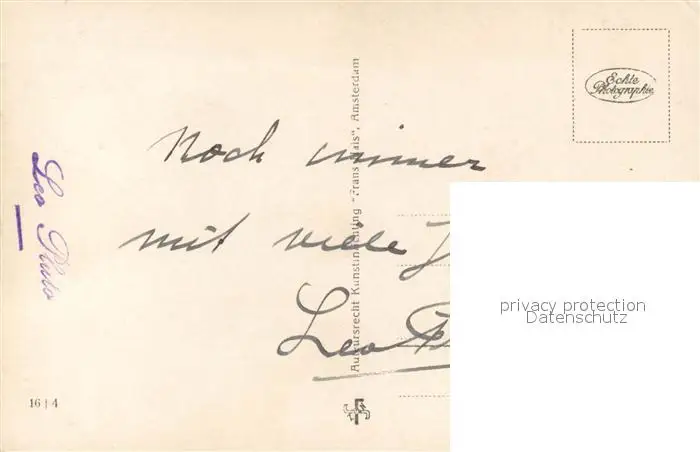 Echte
Photographie
Noch immer
mit viele
Leo
Leo Pluto
Auteursrecht Kunstinrichting "Frans Hals", Amsterdam
16 | 4
privacy protection
Datenschutz